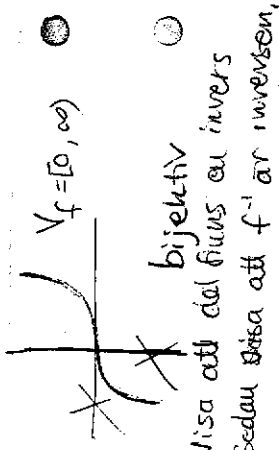 V_f = [0, ∞)
bijektiv
Visa att det finns en invers
sedan visa att f⁻¹ är inversen.